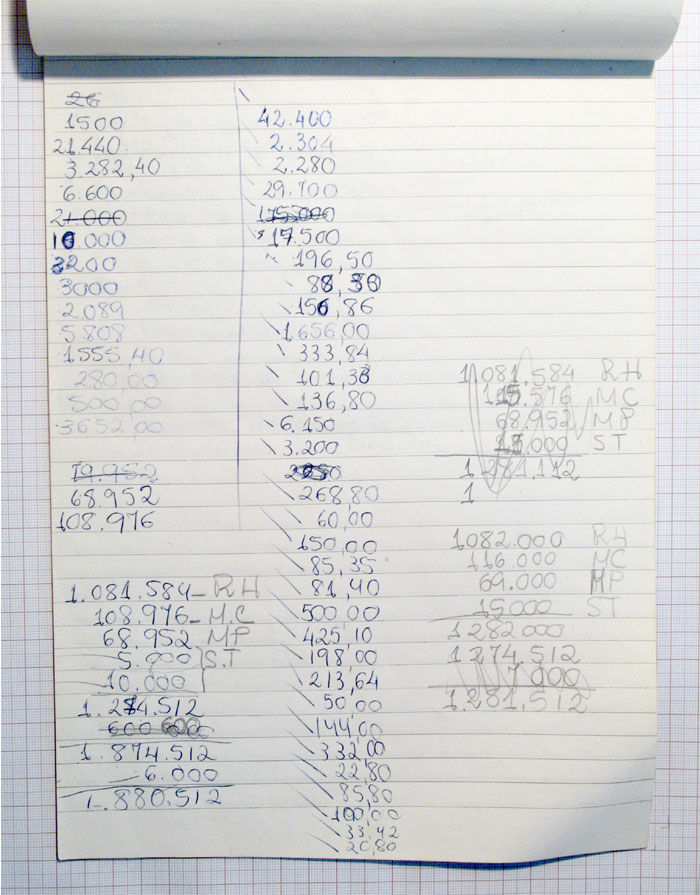 26
1500
21.440
3.282,40
6.600
21.000
10.000
3200
3000
2.089
5.808
1.555,40
280,00
500,00
3652,00
19.952
68.952
108.976
1.081.584_ RH
108.976_ M.C
68.952 MP
5.000 } S.T
10.000
1.274.512
600 600
1.874.512
6.000
1.880.512
42.400
2.304
2.280
29.700
175000
17.500
196,50
88,30
156,86
1656,00
333,84
101,33
136,80
6.150
3.200
268,80
60,00
150,00
85,35
81,40
500,00
425,10
198,00
213,64
50,00
144,00
332,00
22,80
85,80
100,00
33,42
20,80
1.081.584 RH
115.576 MC
68.952 MP
15.000 ST
1.281.112
1
1082.000 RH
116.000 MC
69.000 MP
15000 ST
1282.000
1274.512
7.000
1.281.512